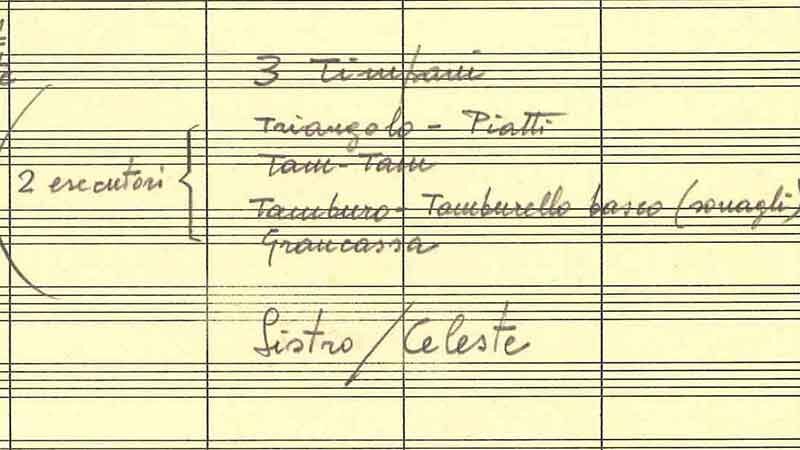 3 Timpani
Triangolo - Piatti
Tam-Tam
2 esecutori
Tamburo - Tamburello basco (sonagli)
Grancassa
Sistro / Celeste